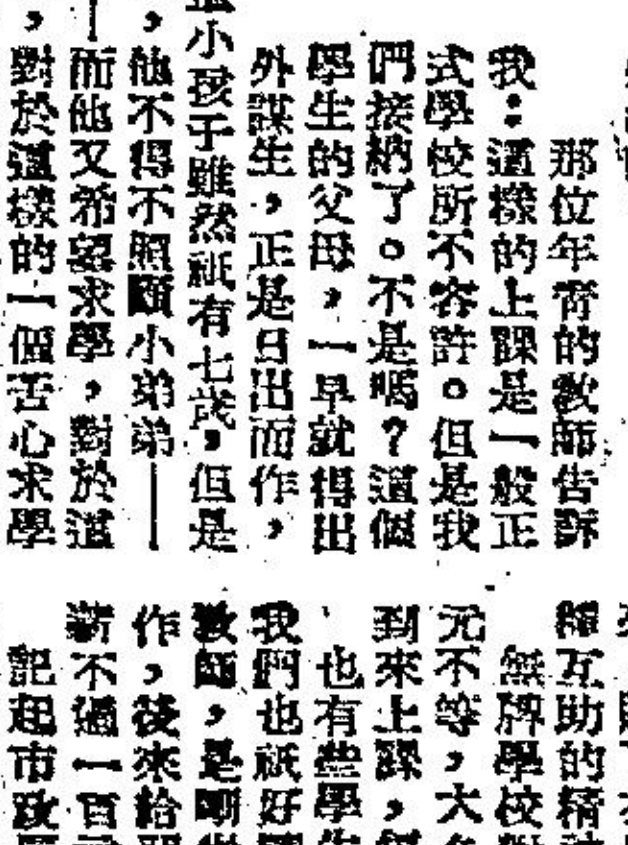 那位年靑的敎師告訴
我：這樣的上課是一般正
式學校所不容許。但是我
們接納了。不是嗎？這個
學生的父母，一早就得出
外謀生，正是日出而作，
小孩子雖然祇有七歲，但是
，他不得不照顧小弟弟——
—而他又希望求學，對於這
，對於這樣的一個苦心求學
互助的精
無牌學校
元不等，大
到來上課，
也有些學
我們也祇好
敎師，是剛
作，後來給
薪不過一百
記起市政